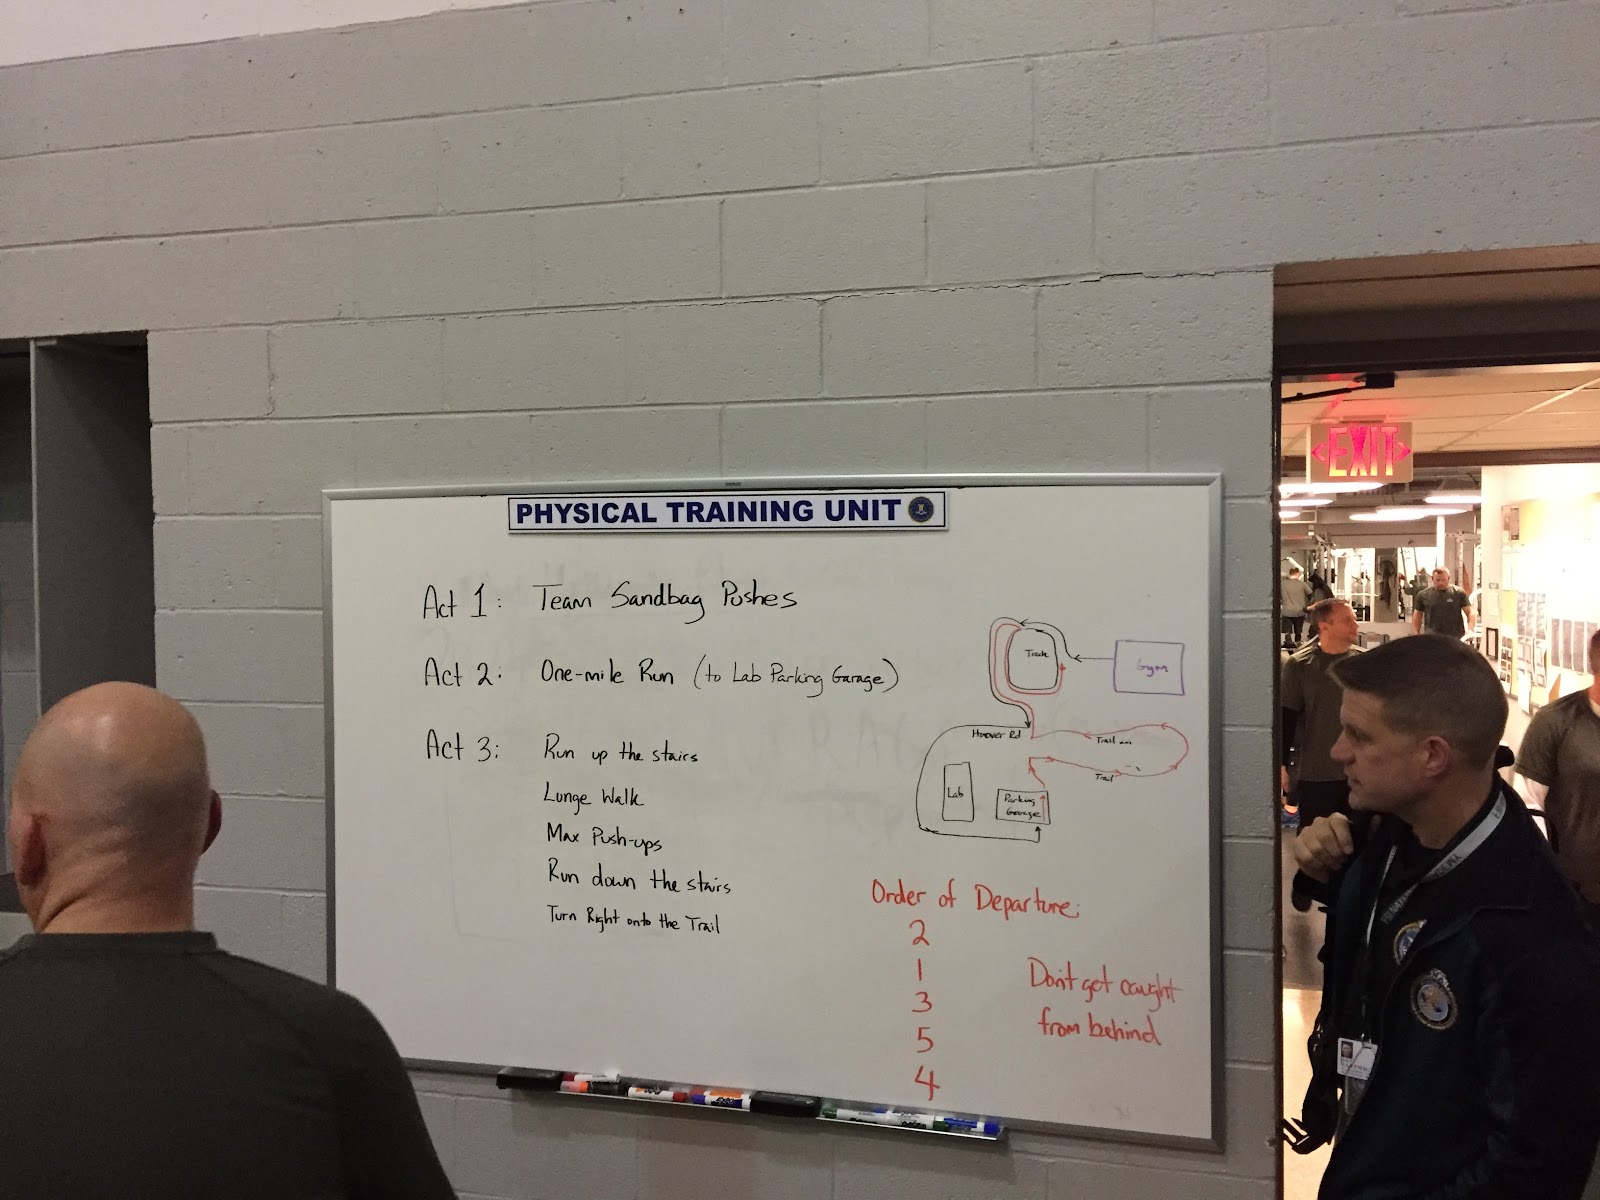 PHYSICAL TRAINING UNIT
Act 1: Team Sandbag Pushes
Act 2: One-mile Run (to Lab Parking Garage)
Act 3: Run up the stairs
Lunge Walk
Max Push-ups
Run down the stairs
Turn Right onto the Trail
Track
Gym
Hoover Rd
Trail
Trail
Lab
Parking
Garage
Order of Departure:
2
1
3
5
4
Don't get caught
from behind
EXIT